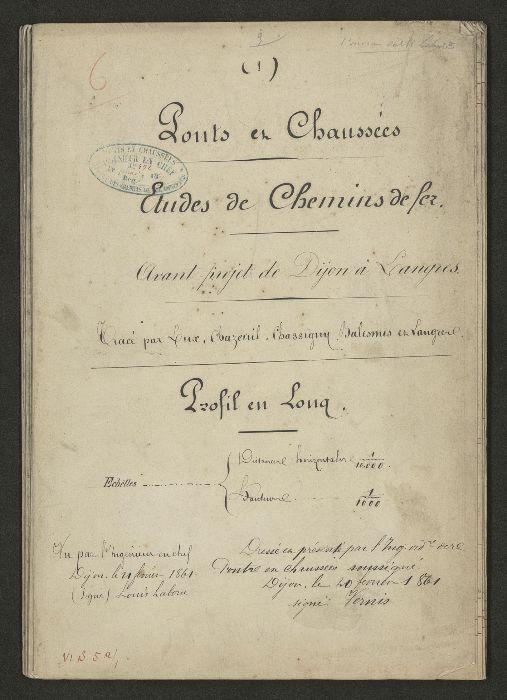 6
(1)
Ponts et Chaussées
PONTS ET CHAUSSÉES
INGÉNIEUR EN CHEF
Études de Chemins de fer.
Avant projet de Dijon à Langres.
Tracé par Lux, Chazeuil, Chassigny, Balesmes et Langres.
Profil en Long.
Echelles
Distances horizontales 1/10.000.
Hauteurs 1/1000
Vu par l'Ingénieur en chef
Dijon, le février 1861
(Signé) Louis
Dressé et présenté par l'Ing. ord.re des
Ponts et chaussées soussigné.
Dijon, le 20 février 1861
signé: Vernis